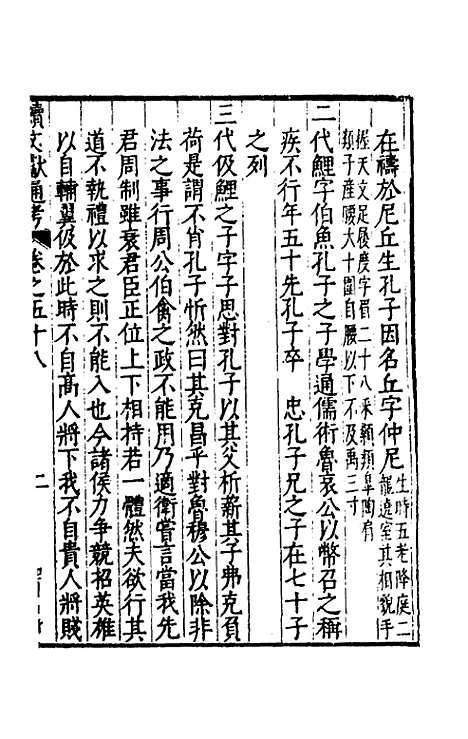 在禱於尼丘生孔子因名丘字仲尼生時五老降庭二
龍遶室其相貌手
握天文足履度字眉二十八采顙類臯陶肩
類子產腰大十圍自腰以下不及禹三寸
二代鯉字伯魚孔子之子學通儒術魯哀公以幣召之稱
疾不行年五十先孔子卒 忠孔子兄之子在七十子
之列
三代伋鯉之子字子思對孔子以其父析薪其子弗克負
荷是謂不肖孔子忻然曰其克昌乎對魯穆公以除非
法之事行周公伯禽之政不能用乃適衛嘗言當我先
君周制雖衰君臣正位上下相持若一體然夫欲行其
道不執禮以求之則不能入也今諸侯力爭競招英雄
以自輔翼伋於此時不自高人將下我不自貴人將賤
續文獻通考 卷之五十八 二